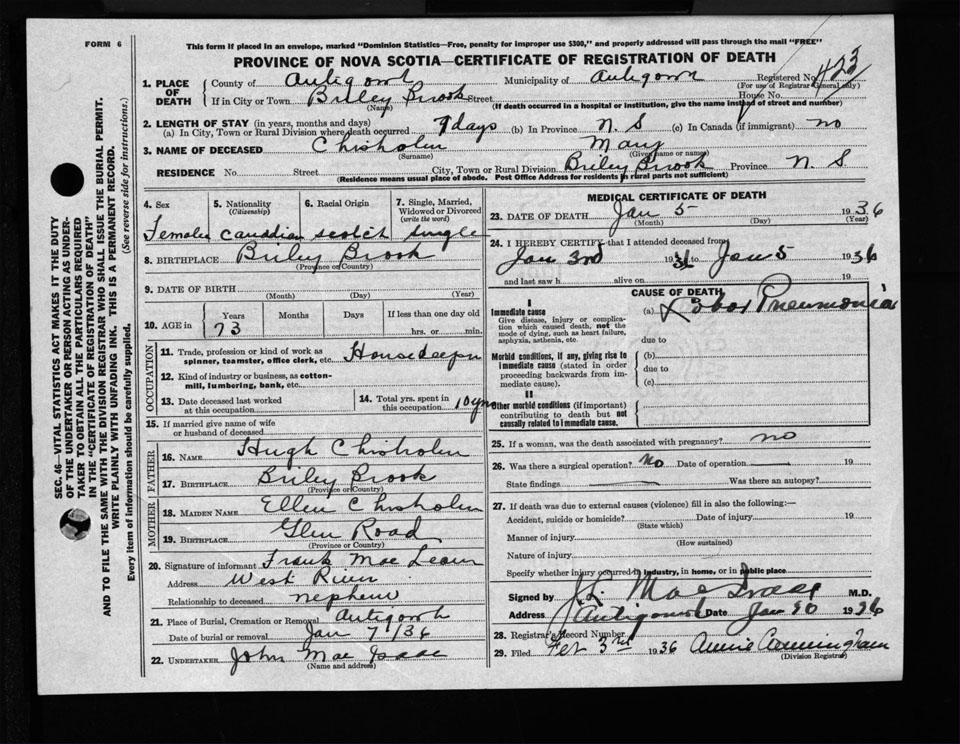 FORM 6
This form if placed in an envelope, marked "Dominion Statistics—Free, penalty for improper use $300," and properly addressed will pass through the mail "FREE"
PROVINCE OF NOVA SCOTIA—CERTIFICATE OF REGISTRATION OF DEATH
1. PLACE OF DEATH County of Antigonish Municipality of Antigonish Registered No. 423
(For use of Registrar General only)
If in City or Town Briley Brook Street House No.
(Name) (If death occurred in a hospital or institution, give the name instead of street and number)
2. LENGTH OF STAY (in years, months and days)
(a) In City, Town or Rural Division where death occurred 9 days (b) In Province N. S (c) In Canada (if immigrant) no
3. NAME OF DECEASED Chisholm Mary
(Surname) (Given name or names)
RESIDENCE No. Street City, Town or Rural Division Briley Brook Province N. S
(Residence means usual place of abode. Post Office Address for residents in rural parts not sufficient)
4. Sex 5. Nationality (Citizenship) 6. Racial Origin 7. Single, Married, Widowed or Divorced (write the word)
Female Canadian Scotch Single
8. BIRTHPLACE Briley Brook
(Province or Country)
9. DATE OF BIRTH
(Month) (Day) (Year)
10. AGE in Years Months Days If less than one day old
73 hrs. or min.
OCCUPATION
11. Trade, profession or kind of work as spinner, teamster, office clerk, etc. Housekeeper
12. Kind of industry or business, as cotton-mill, lumbering, bank, etc.
13. Date deceased last worked at this occupation 14. Total yrs. spent in this occupation 10 yrs
15. If married give name of wife or husband of deceased
FATHER
16. NAME Hugh Chisholm
17. BIRTHPLACE Briley Brook
(Province or Country)
MOTHER
18. MAIDEN NAME Ellen Chisholm
19. BIRTHPLACE Glen Road
(Province or Country)
20. Signature of informant Frank Mac Lean
Address West River
Relationship to deceased nephew
21. Place of Burial, Cremation or Removal Antigonish
Date of burial or removal Jan 7/36
22. UNDERTAKER John Mac Isaac
(Name and address)
MEDICAL CERTIFICATE OF DEATH
23. DATE OF DEATH Jan 5 1936
(Month) (Day) (Year)
24. I HEREBY CERTIFY that I attended deceased from
Jan 3rd 1936 Jan 5 1936
and last saw h alive on 19
CAUSE OF DEATH
I
Immediate cause (a) Lobar Pneumonia
Give disease, injury or complication which caused death, not the mode of dying, such as heart failure, asphyxia, asthenia, etc.
due to
Morbid conditions, if any, giving rise to immediate cause (stated in order proceeding backwards from immediate cause).
(b)
due to
(c)
II
Other morbid conditions (if important) contributing to death but not causally related to immediate cause.
25. If a woman, was the death associated with pregnancy? no
26. Was there a surgical operation? No Date of operation 19
State findings Was there an autopsy?
27. If death was due to external causes (violence) fill in also the following:—
Accident, suicide or homicide? Date of injury 19
(State which)
Manner of injury
(How sustained)
Nature of injury
Specify whether injury occurred in industry, in home, or in public place
Signed by M.D.
Address Antigonish Date Jan
28. Registrar's Record Number
29. Filed Feb 3rd 1936 Annie Cunningham
(Division Registrar)
SEC. 46—VITAL STATISTICS ACT MAKES IT THE DUTY
OF THE UNDERTAKER OR PERSON ACTING AS UNDER-
TAKER TO OBTAIN ALL THE PARTICULARS REQUIRED
IN THE "CERTIFICATE OF REGISTRATION OF DEATH"
AND TO FILE THE SAME WITH THE DIVISION REGISTRAR WHO SHALL ISSUE THE BURIAL PERMIT.
WRITE PLAINLY WITH UNFADING INK. THIS IS A PERMANENT RECORD.
Every item of information should be carefully supplied. (See reverse side for instructions.)